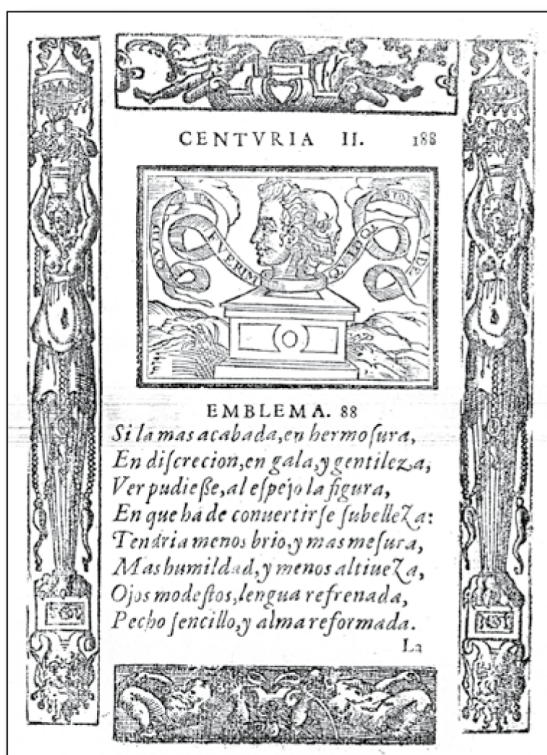 CENTVRIA II. 188
VERIS
EMBLEMA. 88
Si la mas acabada, en hermoſura,
En diſcrecion, en gala, y gentileza,
Ver pudieſſe, al eſpejo la figura,
En que ha de conuertirſe ſu belleza:
Tendria menos brio, y mas meſura,
Mas humildad, y menos altiueza,
Ojos modeſtos, lengua refrenada,
Pecho ſencillo, y alma reformada.
La